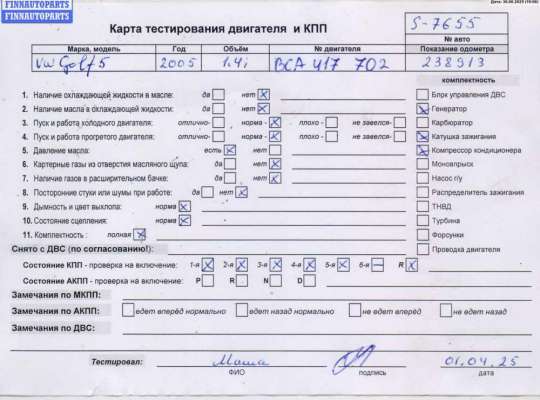 FINNAUTOPARTS
FINNAUTOPARTS
Date: 30.06.2025
Карта тестирования двигателя и КПП
S-7655
№ авто
Марка, модель Год Объём № двигателя Показание одометра
VW Golf 5 2005 1.4i BCA 417 702 238913
комплектность
1. Наличие охлаждающей жидкости в масле: да нет
Блок управления ДВС
2. Наличие масла в охлаждающей жидкости: да нет
Генератор
3. Пуск и работа холодного двигателя: отлично- норма - плохо - не завелся-
Карбюратор
4. Пуск и работа прогретого двигателя: отлично- норма - плохо - не завелся-
Катушка зажигания
5. Давление масла: есть нет
Компрессор кондиционера
6. Картерные газы из отверстия масляного щупа: да нет
Моновпрыск
7. Наличие газов в расширительном бачке: да нет
Насос г/у
8. Посторонние стуки или шумы при работе: да нет
Распределитель зажигания
9. Дымность и цвет выхлопа: норма
ТНВД
10. Состояние сцепления: норма
Турбина
11. Комплектность : полная
Форсунки
Снято с ДВС (по согласованию!):
Проводка двигателя
Состояние КПП - проверка на включение: 1-я 2-я 3-я 4-я 5-я 6-я R
Состояние АКПП - проверка на включение: P R N D
Замечания по МКПП:
Замечания по АКПП: едет вперёд нормально едет назад нормально не едет вперёд не едет назад
Замечания по ДВС:
Тестировал: Маша 01.04.25
ФИО подпись дата